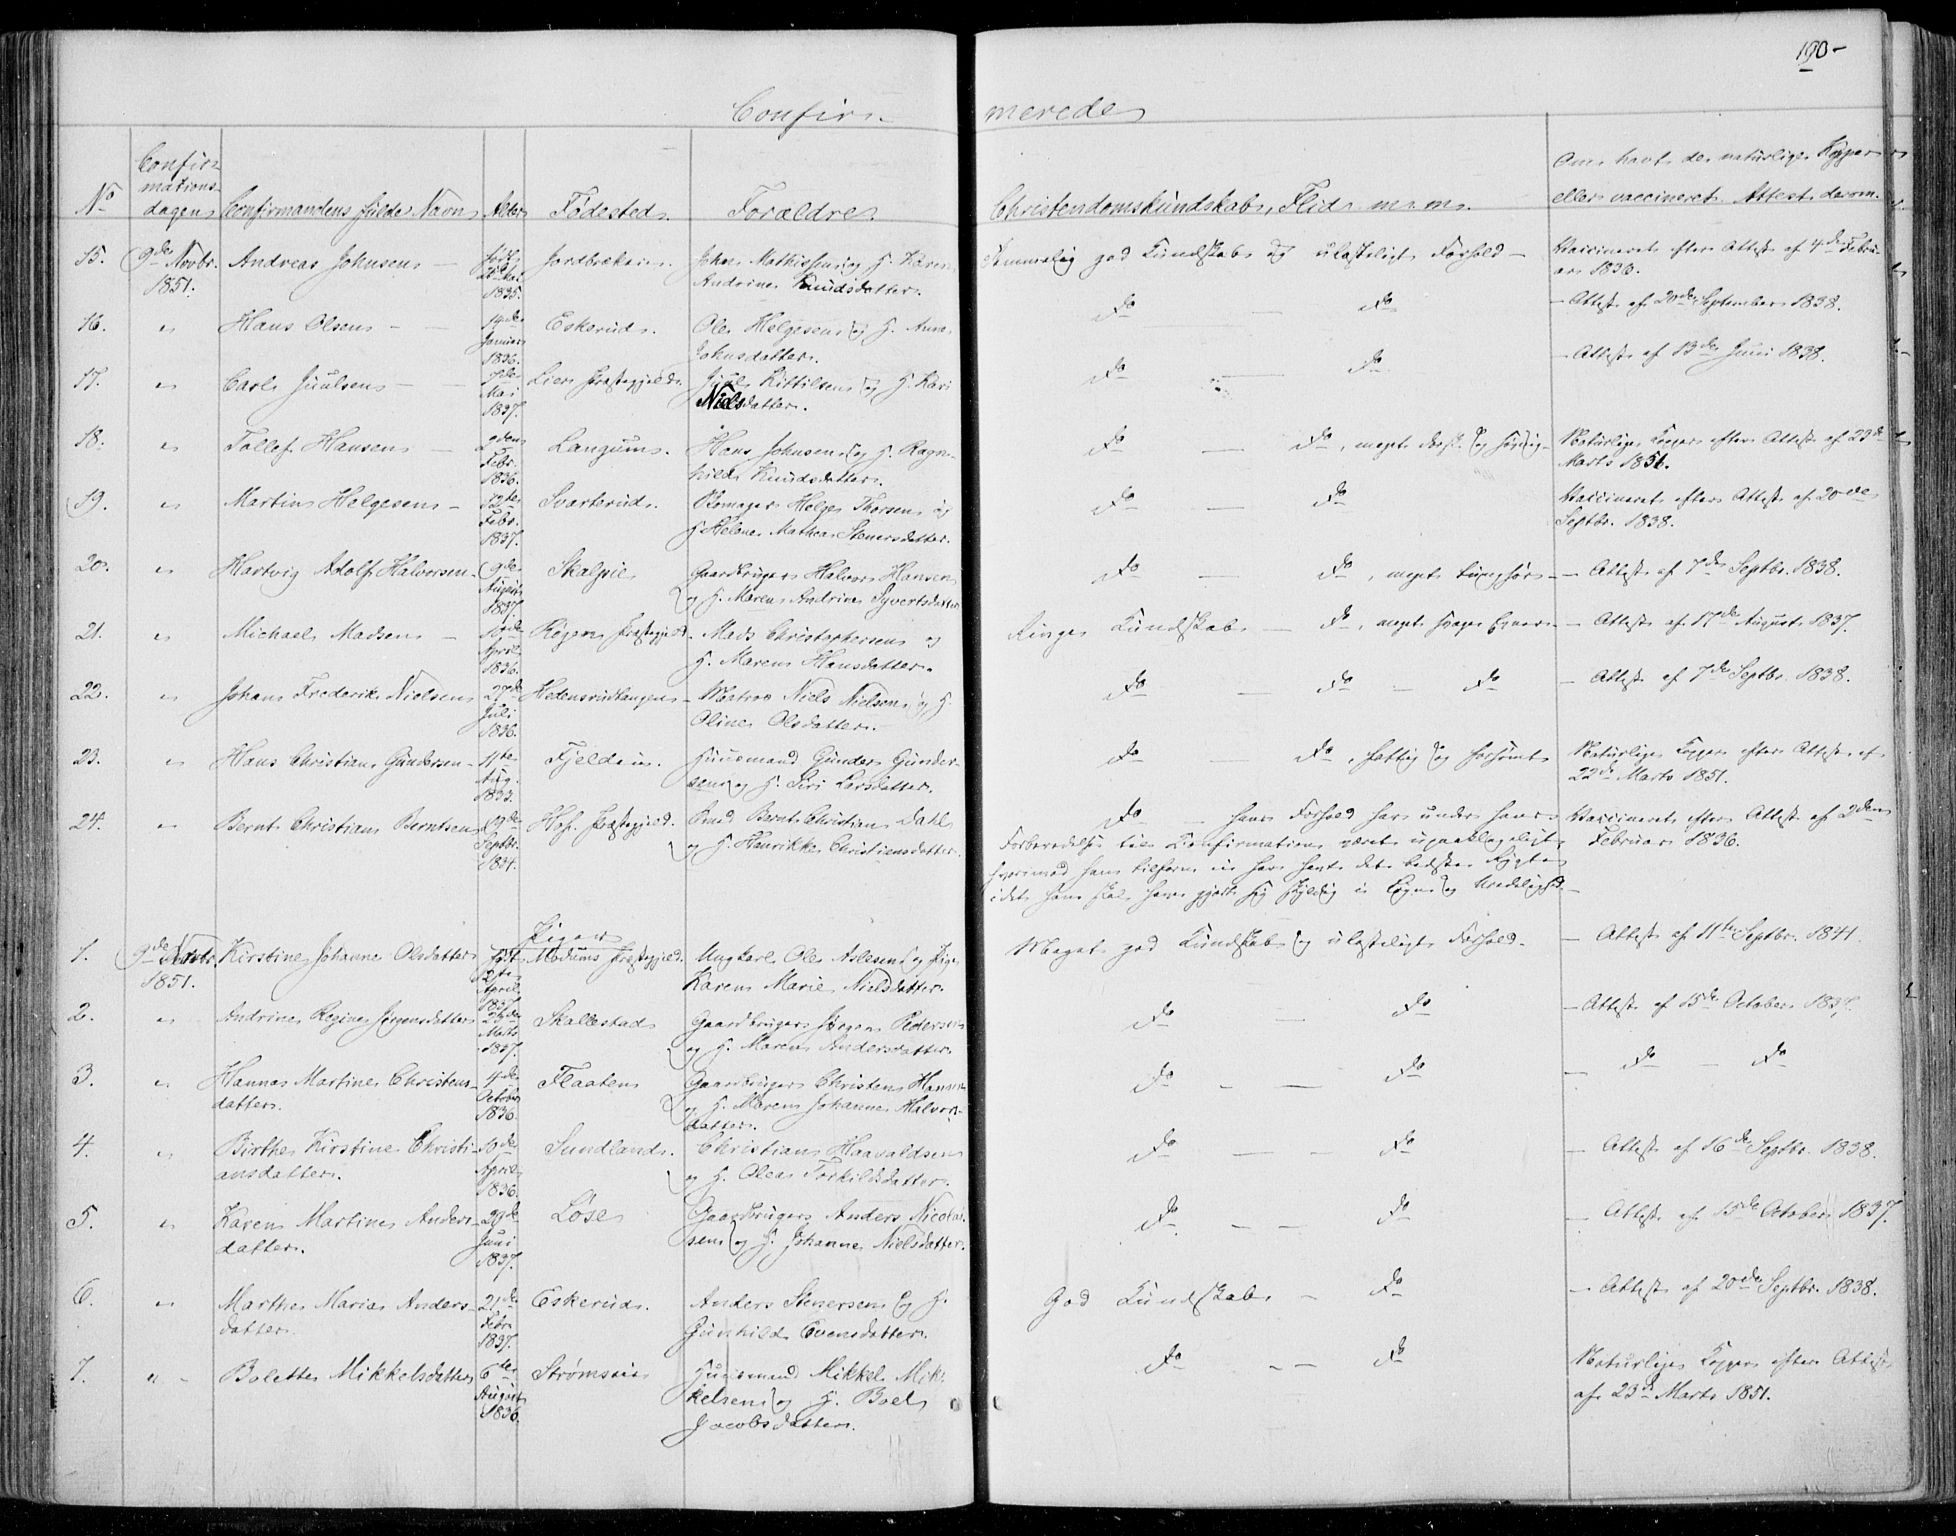 190-
Confir-
merede
Confir-
mations-
No dagen Confirmandens fulde Navn Alder Fødested Forældre
Christendomskundskab, Flid m.m.
Om havt de naturlige Kopper
eller vaccineret. Attest derom.
15. 9de Novbr. Andreas Johnsen født Jordbrækken John Mathissen og H. Karen
1851. 1835. Andrine Knudsdatter.
Temmelig god Kundskab og ulasteligt Forhold -
Vaccineret efter Attest af 4de Febru-
ar 1836.
16. " Hans Olsen - 14de Eskerud. Ole Helgesen og H. Anne
Januar
1836. Johnsdatter.
do - do
- Attest af 20de September 1838.
17. " Carl Juulsen - Lier Præstegjeld. Juul Kittilsen og H. Kari
Mai
1837. Nielsdatter.
do - do
- Attest af 13de Juni 1838.
18. " Tollef Hansen - 2den Langum. Hans Johnsen og H. Ragn-
Febr.
1836. hild Knudsdatter.
do do, meget
Naturlige Kopper efter Attest af 23de
Marts 1851.
19. " Martin Helgesen - 12te Svarterud. Helge Thorsen og
Febr.
1837. H. Helene Mathea Stenersdatter.
do - do
Vaccineret efter Attest af 20de
Septbr. 1838.
20. " Hartvig Adolf Halvorsen - 9de Skalpie Gaardbruger Halvor Hansen
August
1837. og H. Maren Andrine Syvertsdatter
do - do, meget tunghør -
- Attest af 7de Septbr. 1838.
21. " Michael Madsen - Røgen Præstegjeld. Mads Christophersen og
April
1836. H. Maren Hansdatter.
Ringe Kundskab - do, meget svage Evner -
- Attest af 17de August 1837.
22. " Johan Frederik Nielsen 27de Hedensrudtangen - Matros Niels Nielsen og H.
Juli
1836. Oline Olsdatter.
do - do - do
- Attest af 7de Septbr. 1838.
23. " Hans Christian Gundersen - 11te Fjelden. Huusmand Gunder Gunder-
Aug.
1833. sen og H. Siri Larsdatter.
do - do, fattig og forsømt
Naturlige Kopper efter Attest af
22de Marts 1851.
24. " Bernt Christian Berntsen 19de Hof Præstegjeld. Bernt Christian Dahl
Septbr.
1834. og H. Henrikke Christiansdatter.
do - hans Forhold har under hans
Forberedelse til Confirmation været upaaklageligt,
hvorimod han tilforn ei har havt det bedste Rygte,
idet han skal have gjort sig skyldig i Løgn og Uredelighed. -
Vaccineret efter Attest af 2den
Februar 1836.
Piger
1. 9de Novbr. Kirstine Johanne Olsdatter født Modums Præstegjeld. Ungkarl Ole Aslesen og Pige
1851. 12te
April
1837. Karen Marie Nielsdatter.
Meget god Kundskab og ulasteligt Forhold.
- Attest af 11te Septbr. 1841.
2. " Andrine Regine Jørgensdatter Skallestad Gaardbruger Jørgen Pedersen
Marts
1837. og H. Maren Andersdatter.
do - do
- Attest af 15de October 1837.
3. " Hanna Martine Christens- 4de Flaaten Gaardbruger Christen Hansen
datter. October
1836. og H. Maren Johanne Halvors-
datter.
do - - do
- do - do
4. " Birthe Kirstine Christi- 10de Sundland. Christian Haavaldsen
ansdatter. April
1836. og H. Olea Torkildsdatter.
do - - do
- Attest af 16de Septbr. 1838.
5. " Karen Martine Anders- 29de Løse Gaardbruger Anders Nicolai-
datter. Juni
1837. sen og H. Johanne Nielsdatter.
do - - do
- Attest af 15de October 1837.
6. " Marthe Maria Anders- 21de Eskerud. Anders Stenersen og H.
datter. Febr.
1837. Gunhild Evensdatter.
God Kundskab - do
- Attest af 20de Septbr. 1838.
7. " - Bolette Mikkelsdatter 6te Strømsøie Huusmand Mikkel Mik-
August
1836. kelsen og H. Boel
Jacobsdatter.
do - - do
Naturlige Kopper efter Attest
af 23de Marts 1851.